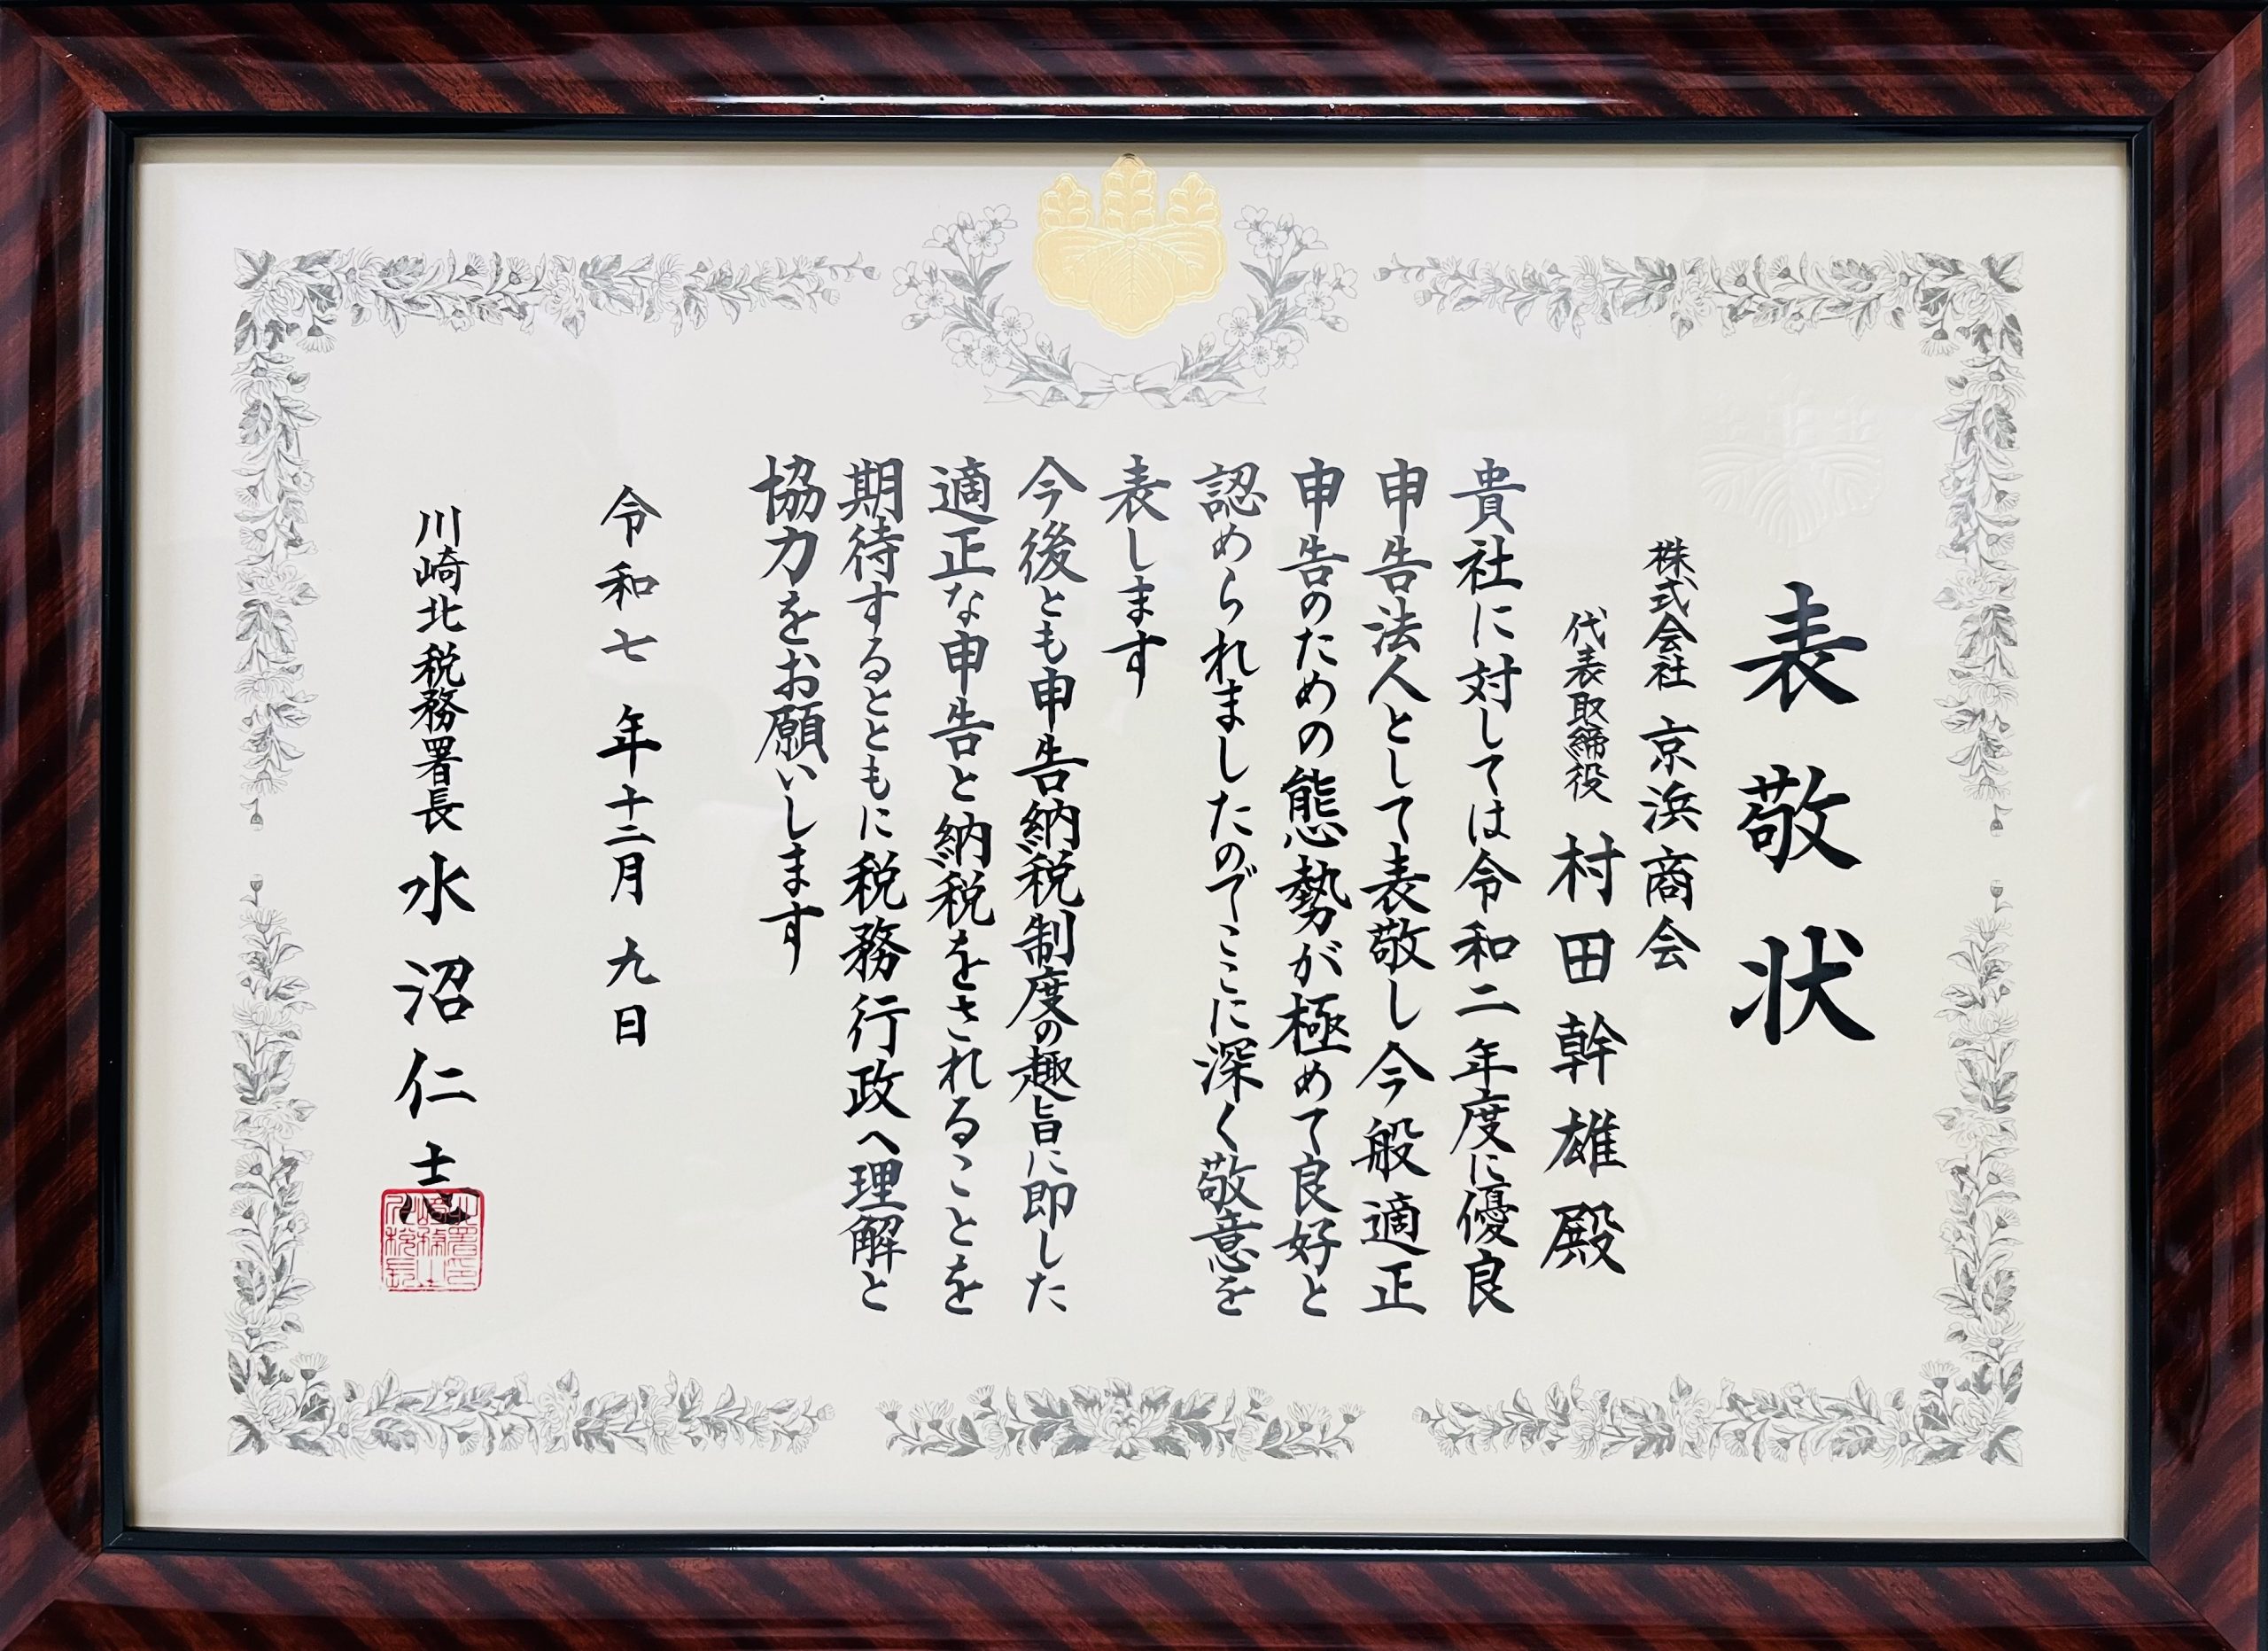 表敬状
株式会社 京浜商会
代表取締役 村田幹雄殿
貴社に対しては令和二年度に優良
申告法人として表敬し今般適正
申告のための態勢が極めて良好と
認められましたのでここに深く敬意を
表します
今後とも申告納税制度の趣旨に即した
適正な申告と納税をされることを
期待するとともに税務行政へ理解と
協力をお願いします
令和七年十二月九日
川崎北税務署長 水沼仁志